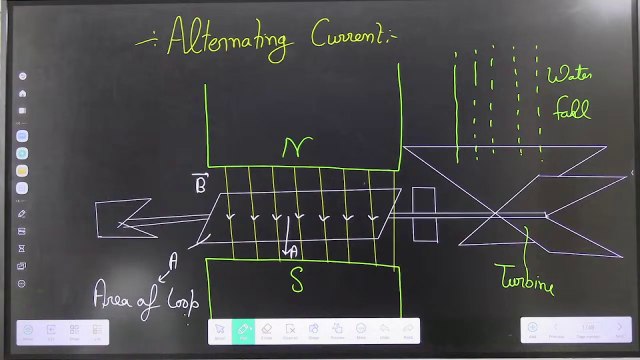 -: Alternating Current :-
Water
fall
N
B
A
A
S
Area of Loop
Turbine